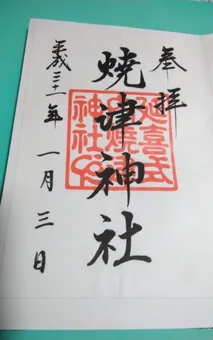 奉拝
延喜式
内焼津
神社
焼津神社
平成三十一年一月三日